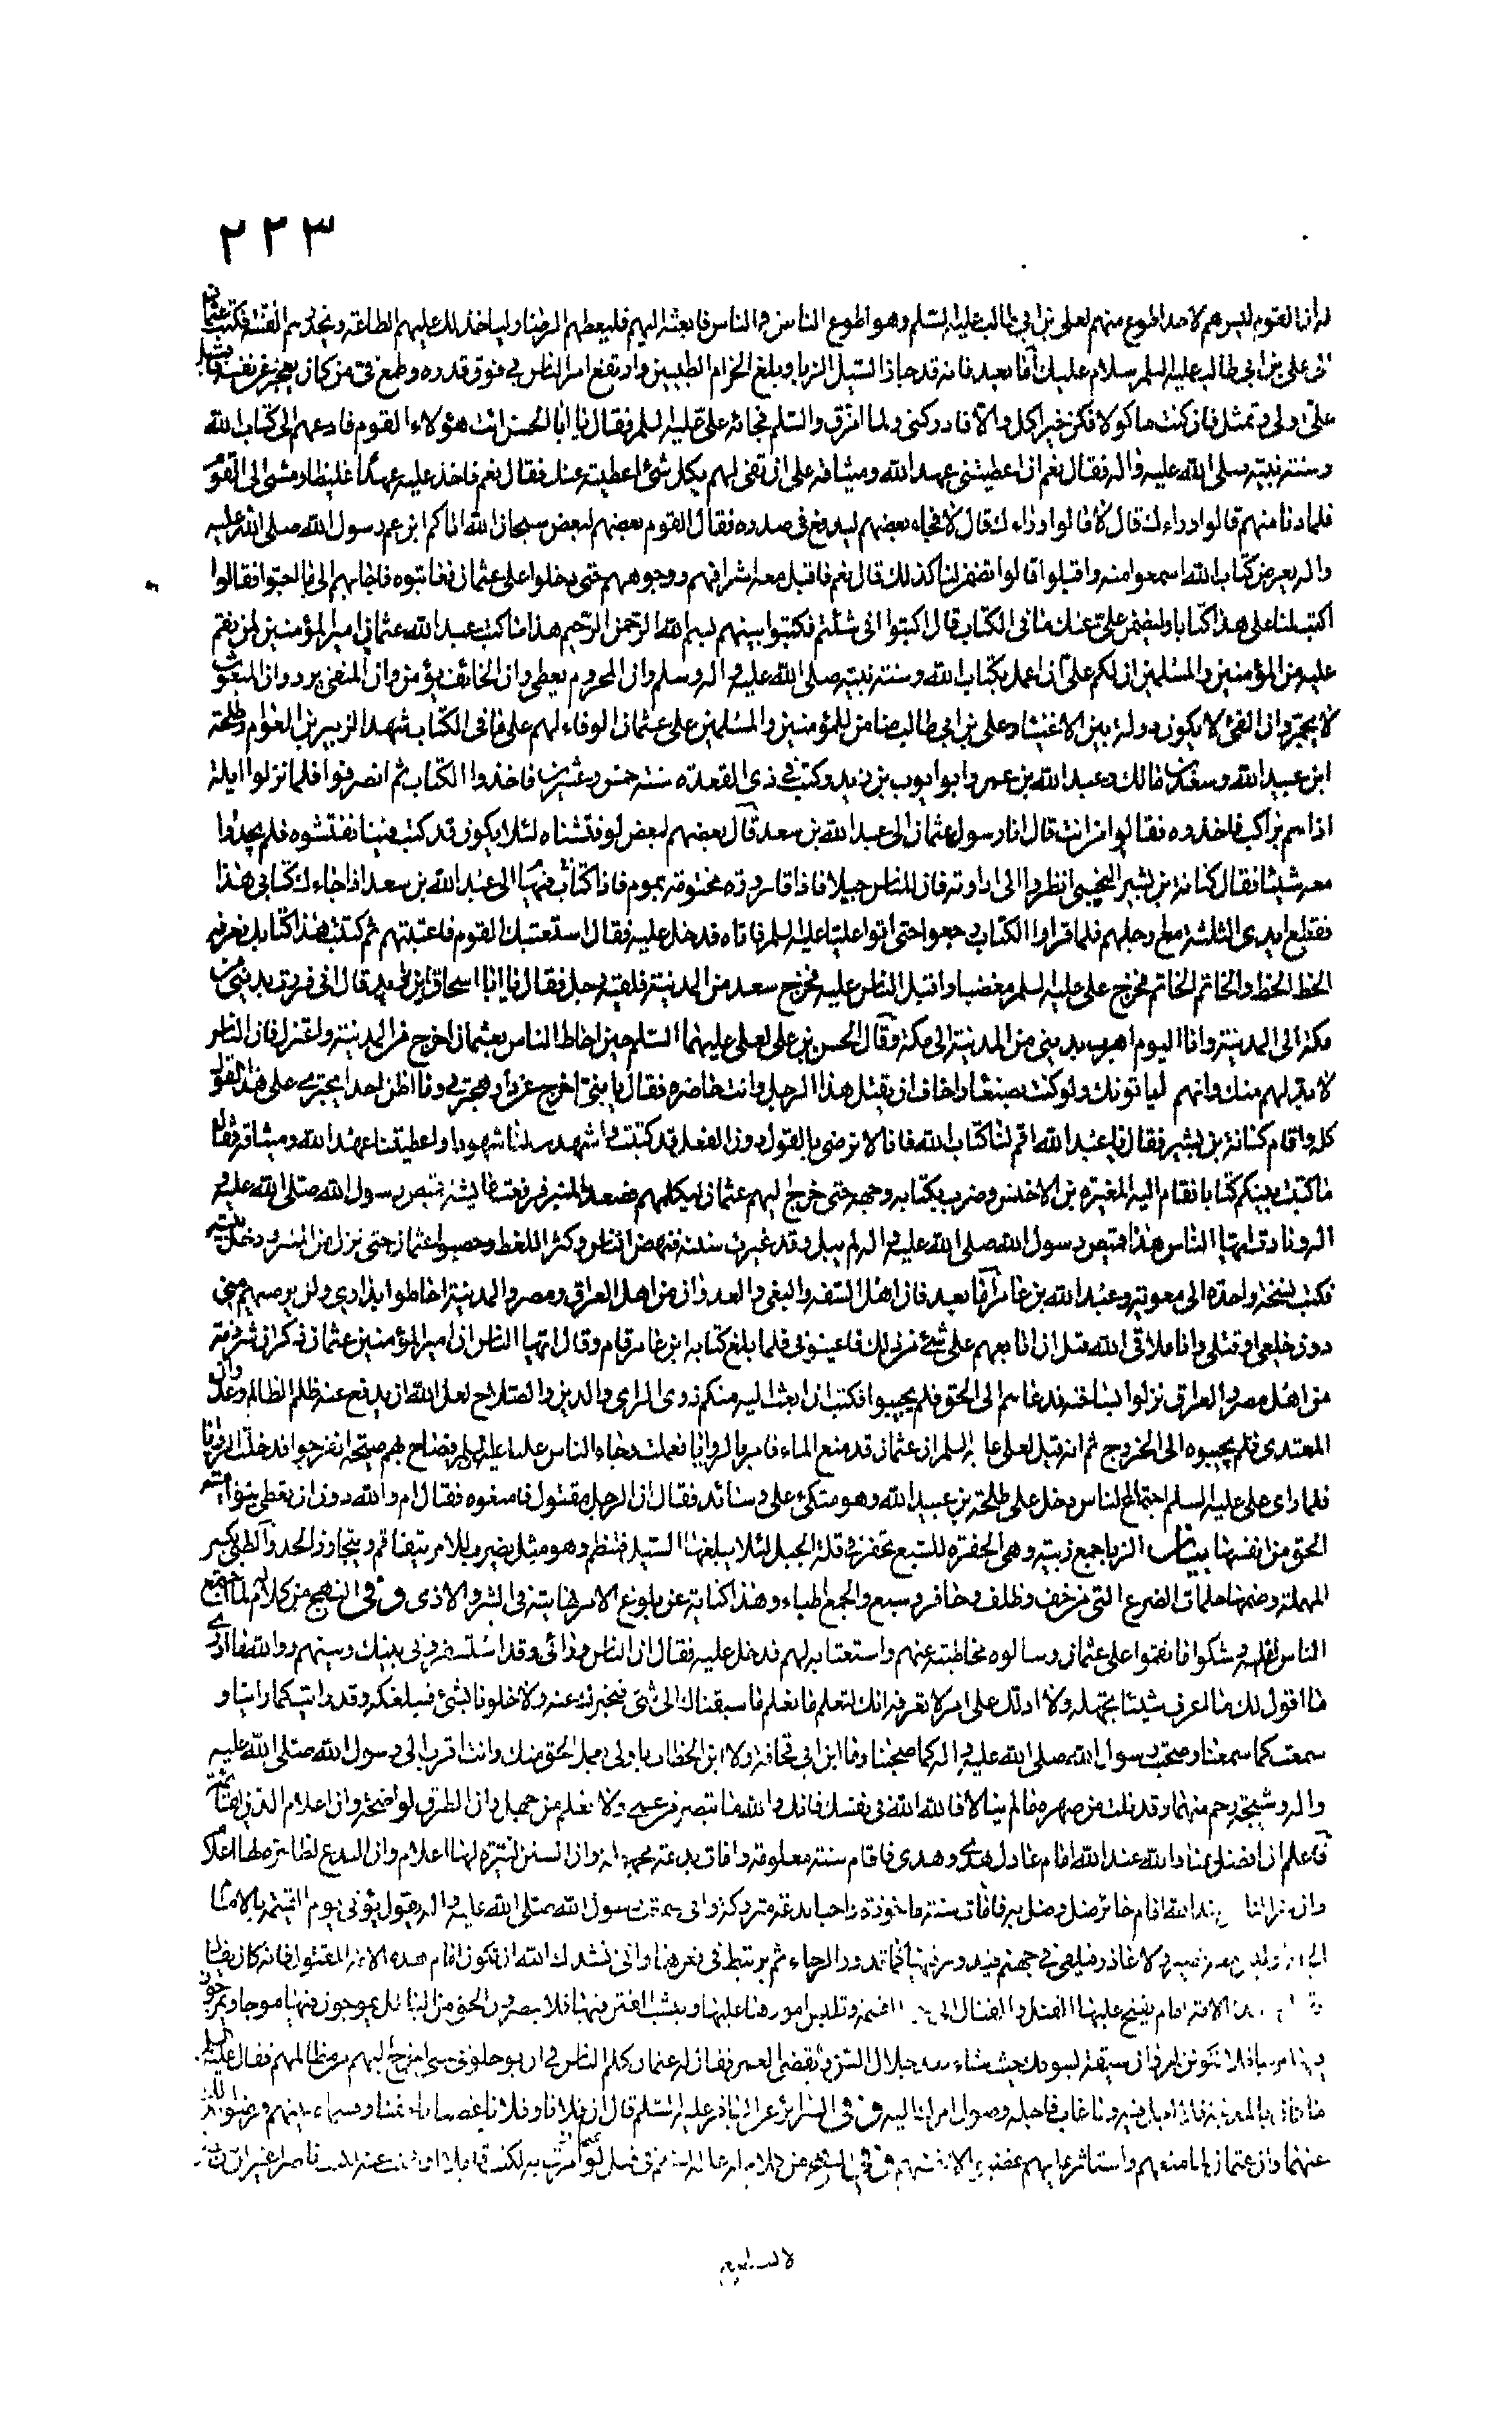 ٢٢٣
له ان القوم ليس هم لاحد اطوع منهم لعلي بن ابي طالب عليه السلم وهو اطوع الناس في الناس فابعثه اليهم فليعطهم الرضا ولياخذ لك عليهم الطاعة ويحذرهم الفتنة فكتب عثمان
الى علي بن ابي طالب عليه السلم سلام عليك اما بعد فانه قد جاز السيل الزبا وبلغ الحزام الطبيين وارتفع امر الناس في فوق قدره وطمع في من كان يعجز عن نفسه فاقبل
علي ولي وتمثل فان كنت ماكولا فكن خير اكل والا فادركني ولما امزق والسلم فجائه علي عليه السلم فقال يا ابا الحسن ائت هؤلاء القوم فادعهم الى كتاب الله
وسنة نبيه صلى الله عليه واله فقال نعم ان اعطيتني عهد الله وميثاقه على ان تفي لهم بكل شئ اعطيته عنك فقال نعم فاخذ عليه عهدا غليظا ومشى الى القوم
فلما دنا منهم قالوا وراءك قال لا قالوا وراءك قال لا فجاء بعضهم ليدفع في صدره فقال القوم بعضهم لبعض سبحان الله اتاكم ابن عم رسول الله صلى الله عليه
واله يعرض كتاب الله اسمعوا منه واقبلوا قالوا تضمن لنا كذلك قال نعم فاقبل معه اشرافهم ووجوههم حتى دخلوا على عثمان فعاتبوه فاجابهم الى ما احبوا فقالوا
اكتب لنا على هذا كتابا وليضمن علي عنك ما في الكتاب قال اكتبوا انى شئتم فكتبوا بينهم بسم الله الرحمن الرحيم هذا ما كتب عبد الله عثمان امير المؤمنين لمن نقم
عليه من المؤمنين والمسلمين ان لكم علي ان اعمل بكتاب الله وسنة نبيه صلى الله عليه واله وسلم وان المحروم يعطى وان الخائف يؤمن وان المنفي يرد وان المبعوث
لا يجمر وان الفئ لا يكون دولة بين الاغنياء وعلي بن ابي طالب ضامن للمؤمنين والمسلمين على عثمان الوفاء لهم على ما في الكتاب شهد الزبير بن العوام وطلحة
ابن عبيد الله وسعد بن مالك وعبد الله بن عمر وابو ايوب بن زيد وكتب في ذي القعدة سنة خمس وعشرين فاخذوا الكتاب ثم انصرفوا فلما نزلوا ايلة
اذا هم براكب فاخذوه فقالوا من انت قال انا رسول عثمان الى عبد الله بن سعد قال بعضهم لبعض لو فتشناه لئلا يكون قد كتب فينا ففتشوه فلم يجدوا
معه شيئا فقال كنانة بن بشير التجيبي انظروا الى اداوته فان للناس حيلا فاذا قارورة مختومة بموم فاذا كتاب فيها الى عبد الله بن سعد اذا جاءك كتابي هذا
فاقطع ايدي الثلثة مع ارجلهم فلما قراوا الكتاب رجعوا حتى اتوا عليا عليه السلم فاتاه فدخل عليه فقال استعتبك القوم فاعتبتهم ثم كتبت هذا كتابك نعرفه
الخط الخط والخاتم الخاتم فخرج علي عليه السلم مغضبا واقبل الناس عليه فخرج سعد من المدينة فلقيه رجل فقال يا ابا اسحاق اين تريد قال اني فررت بديني من
مكة الى المدينة وانا اليوم اهرب بديني من المدينة الى مكة وقال الحسن بن علي لعلي عليهما السلم حين احاط الناس بعثمان اخرج من المدينة واعتزل فان الناس
لا بد لهم منك وانهم لياتونك ولو كنت بصنعاء واخاف ان يقتل هذا الرجل وانت حاضره فقال يا بني اخرج عن دار هجرتي وما اظن احدا يجتري على هذا القول
كله وقام كنانة بن بشير فقال يا عبد الله اقم لنا كتاب الله فانا لا نرضى بالقول دون الفعل قد كتبت واشهدت لنا شهودا واعطيتنا عهد الله وميثاقه فقال
ما كتبت بينكم كتابا فقام اليه المغيرة بن الاخنس وضرب بكتابه وجهه حتى خرج اليهم عثمان ليكلمهم فصعد المنبر فرفعت عايشة قميص رسول الله صلى الله عليه و
اله ونادت ايها الناس هذا قميص رسول الله صلى الله عليه واله لم يبل وقد غيرت سنته فنهض الناس وكثر اللغط وحصبوا عثمان حتى نزل من المنبر ودخل بيته
فكتب نسخة واحدة الى معوية وعبد الله بن عامر اما بعد فان اهل السفه والبغي والعدوان من اهل العراق ومصر والمدينة احاطوا بداري ولن يرضيهم مني
دون خلعي او قتلي وانا ملاقي الله قبل ان اتابعهم على شئ من ذلك فاعينوني فلما بلغ كتابه ابن عامر قام وقال ايها الناس ان امير المؤمنين عثمان ذكر ان شرذمة
من اهل مصر والعراق نزلوا بساحته فدعاهم الى الحق فلم يجيبوا فكتب ان ابعث اليه منكم ذوي الراي والدين والصلاح لعل الله ان يدفع عنه ظلم الظالم وعدوان
المعتدي فلم يجيبوه الى الخروج ثم انه قيل لعلي عليه السلم ان عثمان قد منع الماء فامر بالروايا فعملت وجاء الناس عليا عليه السلم فصاح بهم صيحة انفرجوا فدخلت الروايا
فلما راى علي عليه السلم اجتماع الناس دخل على طلحة بن عبيد الله وهو متكئ على وسائد فقال ان الرجل مقتول فامنعوه فقال ام والله دون ان تعطي بنو امية
الحق من انفسها بيان الزبا جمع زبية وهي الحفرة للسبع تحفر في قلة الجبل لئلا يبلغها السيل فتنطم وهو مثل يضرب للامر يتفاقم ويتجاوز الحد والطبي بكسر
المهملة وضمها حلمات الضرع التي من خف وظلف وحافر وسبع والجمع اطباء وهذا كناية عن بلوغ الامر غايته في الشر والاذى وفي النهج من كلام له لما اجتمع
الناس اليه وشكوا ما نقموا على عثمان وسالوه مخاطبته عنهم واستعتابه لهم فدخل عليه فقال ان الناس ورائي وقد استسفروني بينك وبينهم ووالله ما ادري
ما اقول لك ما اعرف شيئا تجهله ولا ادلك على امر لا تعرفه انك لتعلم ما نعلم ما سبقناك الى شئ فنخبرك عنه ولا خلونا بشئ فنبلغكه وقد رايت كما راينا و
سمعت كما سمعنا وصحبت رسول الله صلى الله عليه واله كما صحبنا وما ابن ابي قحافة ولا ابن الخطاب باولى بعمل الحق منك وانت اقرب الى رسول الله صلى الله عليه
واله وشيجة رحم منهما وقد نلت من صهره ما لم ينالا فالله الله في نفسك فانك والله ما تبصر من عمى ولا تعلم من جهل وان الطرق لواضحة وان اعلام الدين لقائمة
فاعلم ان افضل عباد الله عند الله امام عادل هدي وهدى فاقام سنة معلومة وامات بدعة مجهولة وان السنن لنيرة لها اعلام وان البدع لظاهرة لها اعلام
وان شر الناس عند الله امام جائر ضل وضل به فامات سنة ماخوذة واحيا بدعة متروكة واني سمعت رسول الله صلى الله عليه واله يقول يؤتى يوم القيمة بالامام
الجائر وليس معه نصير ولا عاذر فيلقى في جهنم فيدور فيها كما تدور الرحاء ثم يرتبط في قعرها واني انشدك الله ان تكون امام هذه الامة المقتول فانه كان يقال
يقتل في هذه الامة امام يفتح عليها القتل والقتال الى يوم القيمة وتلبس امورها عليها ويبث الفتن فيها فلا يبصرون الحق من الباطل يموجون فيها موجا ويمرجون
فيها مرجا فلا تكونن لمروان سيقة يسوقك حيث شاء بعد جلال السن وتقضي العمر فقال له عثمان كلم الناس في ان يؤجلوني حتى اخرج اليهم من مظالمهم فقال عليه السلم
ما كان بالمدينة فلا اجل فيه وما غاب فاجله وصول امرك اليه
عنهما وان عثمان